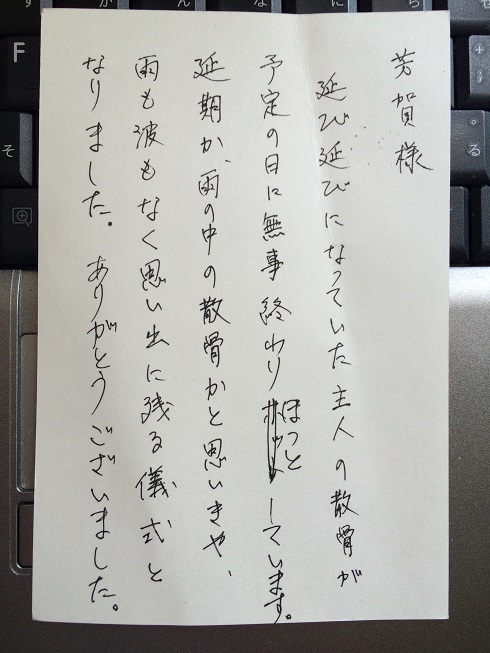 芳賀様
延び延びになっていた主人の散骨が
予定の日に無事終わりほっとしています。
延期か、雨の中の散骨かと思いきや、
雨も波もなく思い出に残る儀式と
なりました。ありがとうございました。
F
そ
る